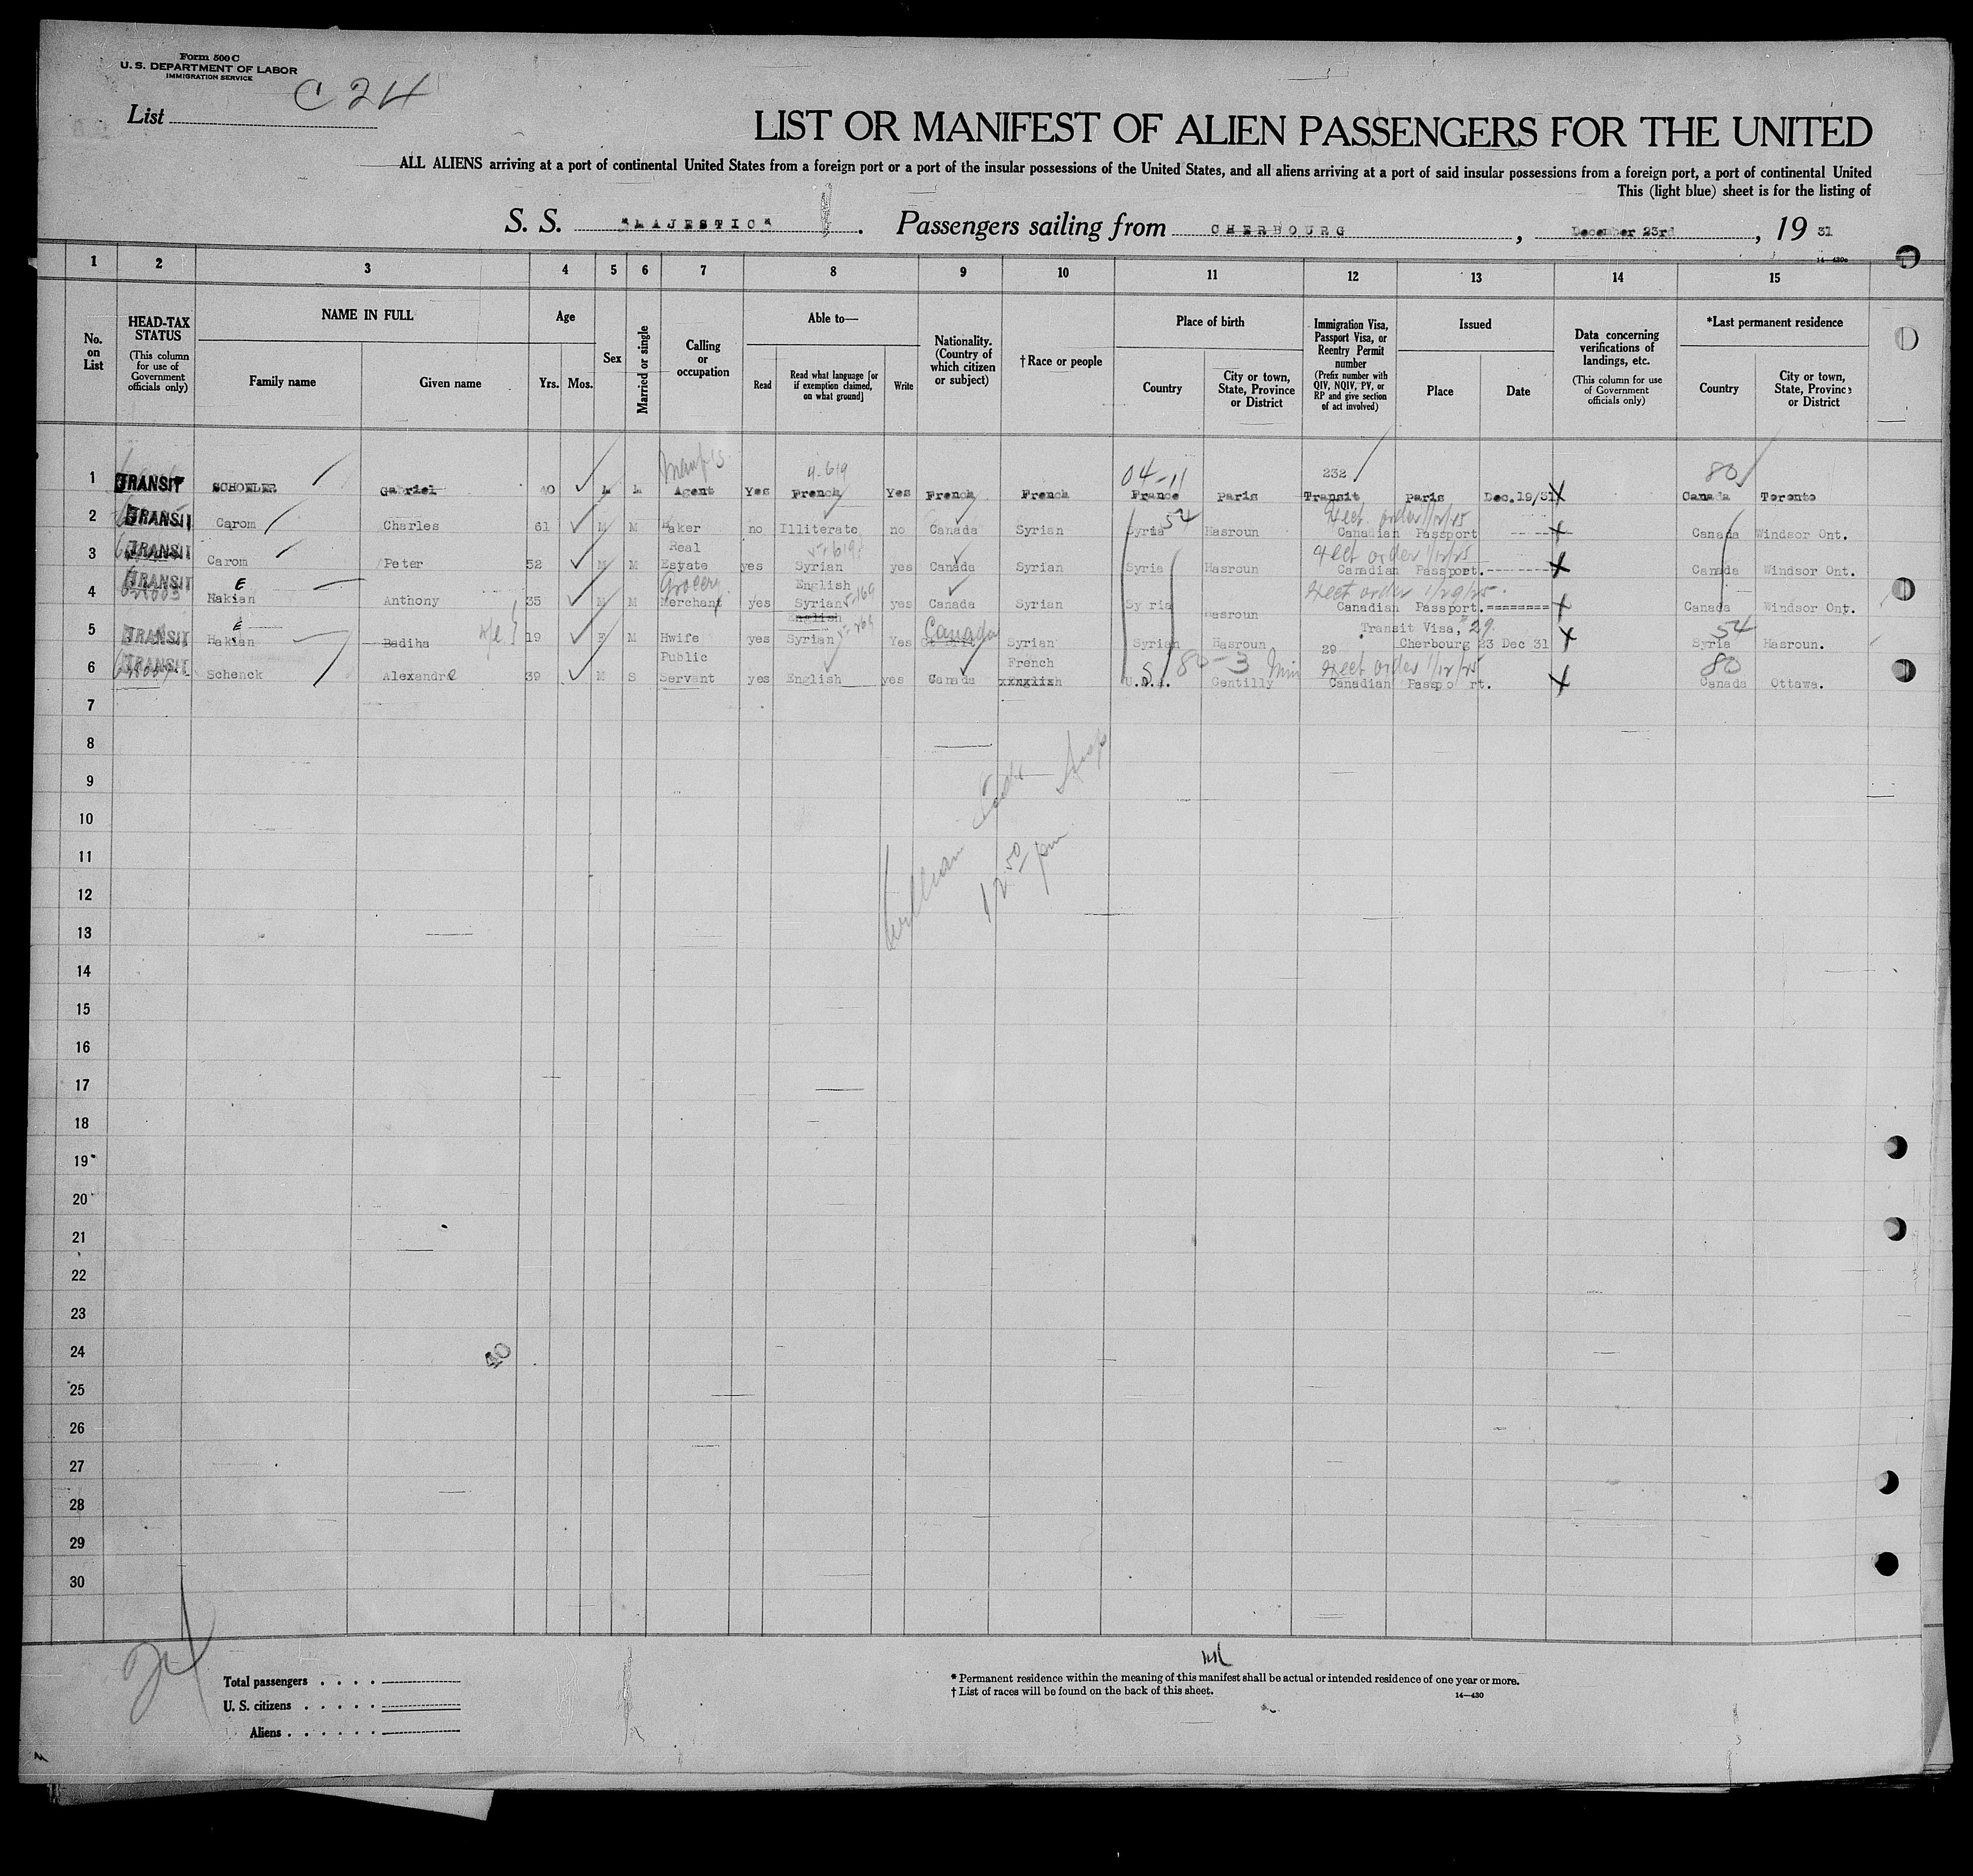 Form 500 C
U. S. DEPARTMENT OF LABOR
IMMIGRATION SERVICE
C 24
List
LIST OR MANIFEST OF ALIEN PASSENGERS FOR THE UNITED
ALL ALIENS arriving at a port of continental United States from a foreign port or a port of the insular possessions of the United States, and all aliens arriving at a port of said insular possessions from a foreign port, a port of continental United
This (light blue) sheet is for the listing of
S. S. "MAJESTIC". Passengers sailing from CHERBOURG, December 23rd, 19 31
14—430c
1 2 3 4 5 6 7 8 9 10 11 12 13 14 15
No. on List
HEAD-TAX STATUS (This column for use of Government officials only)
NAME IN FULL
Family name Given name
Age
Yrs. Mos.
Sex
Married or single
Calling or occupation
Able to—
Read
Read what language [or if exemption claimed, on what ground]
Write
Nationality. (Country of which citizen or subject)
†Race or people
Place of birth
Country
City or town, State, Province or District
Immigration Visa, Passport Visa, or Reentry Permit number (Prefix number with QIV, NQIV, PV, or RP and give section of act involved)
Issued
Place Date
Data concerning verifications of landings, etc. (This column for use of Government officials only)
*Last permanent residence
Country
City or town, State, Province or District
4-619 04-11 232 80
1 TRANSIT SCHOELER Gabriel 40 M M Agent Yes French Yes French French France Paris Transit Paris Dec.19/31 X Canada Toronto
54
2 TRANSIT Carom Charles 61 M M Baker no Illiterate no Canada Syrian Syria Hasroun Canadian Passport X Canada Windsor Ont.
3 TRANSIT Carom Peter 52 M M Real Estate yes Syrian yes Canada Syrian Syria Hasroun Canadian Passport. X Canada Windsor Ont.
Grocery English
4 TRANSIT Hakian E Anthony 35 M M Merchant yes Syrian yes Canada Syrian Syria Hasroun Canadian Passport.======== X Canada Windsor Ont.
English Canada Transit Visa, 29 54
5 TRANSIT Hakian E Badiha 19 F M Hwife yes Syrian Yes Syrian Syrian Hasroun 29 Cherbourg 23 Dec 31 X Syria Hasroun.
Public French 80-3 Min 80
6 TRANSIT Schenck Alexandre 39 M S Servant yes English yes Canada xxnglish U.S. Gentilly Canadian Passport. X Canada Ottawa.
7
8
9
10
11
12
13
14
15
16
17
18
19
20
21
22
23
24
25
26
27
28
29
30
William
12 50 pm
40
24
Total passengers
U. S. citizens
Aliens
* Permanent residence within the meaning of this manifest shall be actual or intended residence of one year or more.
† List of races will be found on the back of this sheet.
14—430